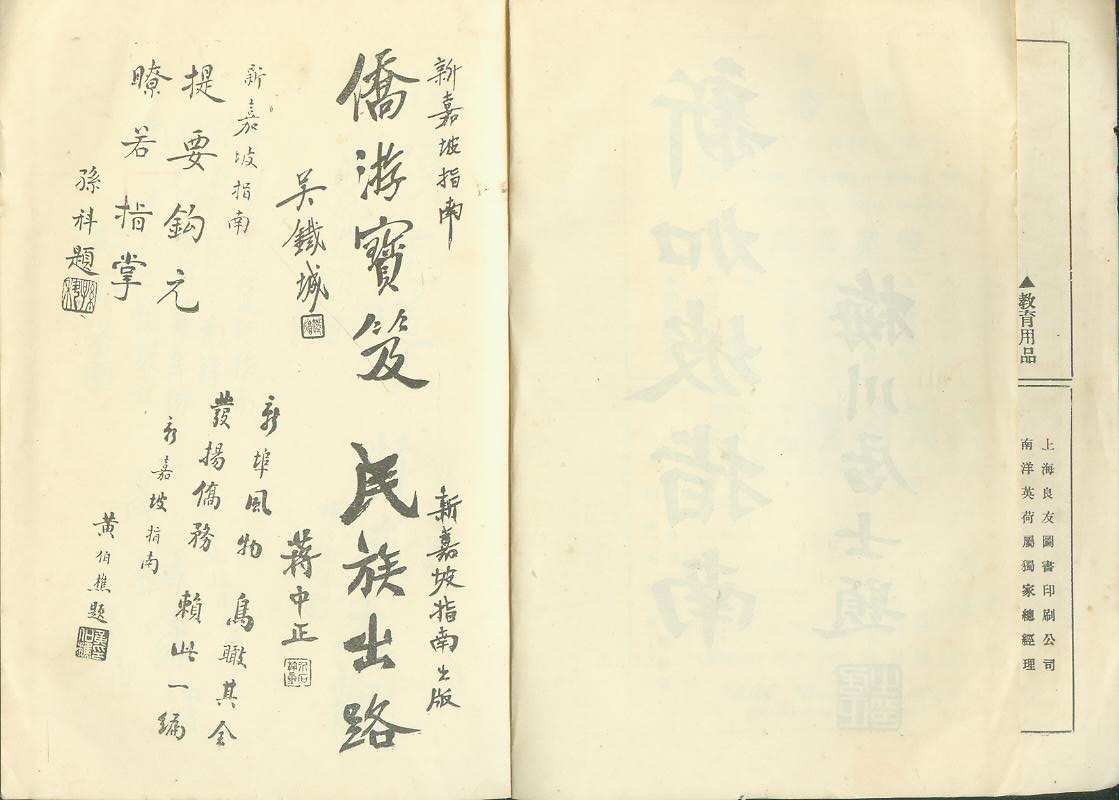 ▲教育用品
上海良友圖書印刷公司
南洋英荷屬獨家總經理
新加坡指南
梅川居士題
新嘉坡指南
僑游寶笈
吳鐵城
新嘉坡指南
提要鈎元
瞭若指掌
孫科題
新嘉坡指南出版
民族出路
蔣中正
新埠風物 鳥瞰其全
發揚僑務 賴此一編
新嘉坡指南
黃伯樵題